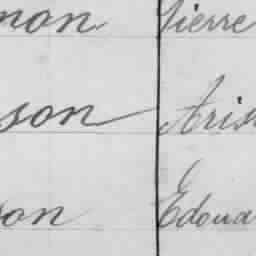 mon Pierre
son Aris
on Edoua